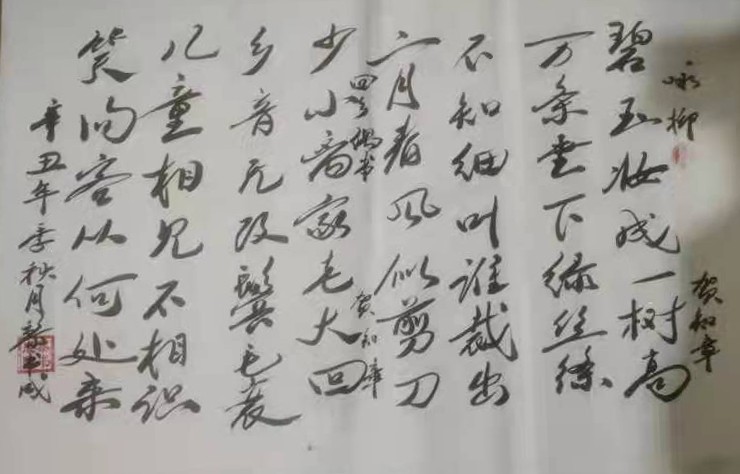 咏柳
贺知章
碧玉妆成一树高
万条垂下绿丝绦
不知细叶谁裁出
二月春风似剪刀
回乡偶书
贺知章
少小离家老大回
乡音无改鬓毛衰
儿童相见不相识
笑问客从何处来
辛丑年季秋月